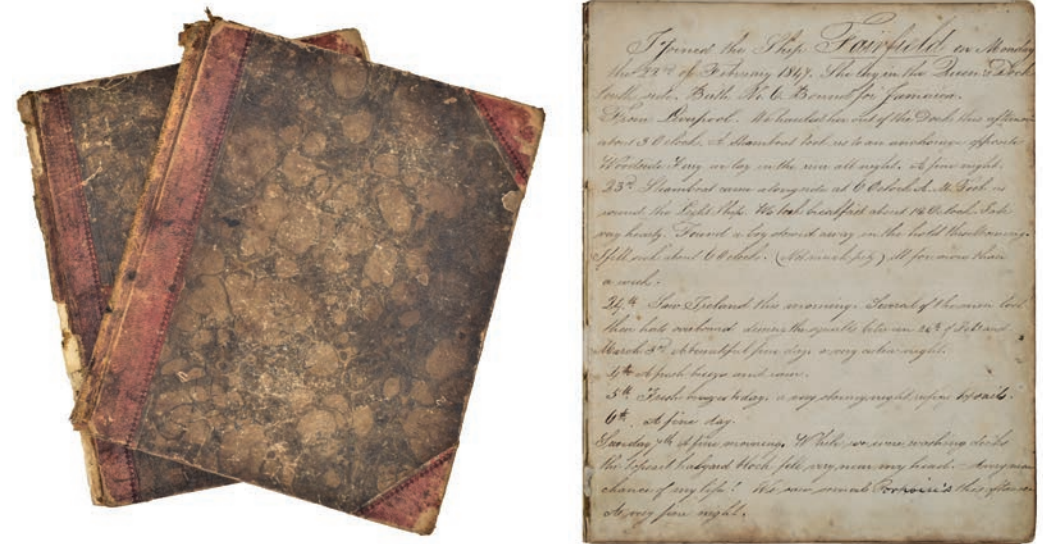 I joined the Ship Fairfield on Monday
the 22nd of February 1847. She lay in the Queen's Dock
south side. Berth No. 6 Bound for Jamaica.
From Liverpool. We hauled her out of the Dock this afternoon
about 3 O'clock. A Steamboat took us to an anchorage opposite
Woodside Ferry we lay in the river all night. A fine night.
23rd Steamboat came alongside at 6 O'clock A.M. Took us
round the Light Ship. We took breakfast about 12 O'clock.
very hearty. Found a boy stowed away in the hold this morning.
I fell sick about 6 O'clock. (Not sea sick) ill for more than
a week.
24th Saw Ireland this morning. Several of the men lost
their hats overboard during the squalls on 26th of Feb and
March 3rd A beautiful fine day a very calm night.
4th A fresh breeze and rain.
5th Fresh breeze today. a very stormy night topsails.
6th. A fine day.
Sunday 7th A fine morning. While we were washing decks
the Topsail halyard block fell very near my head. A very near
chance of my life! We saw some Porpoise's this afternoon
A very fine night.